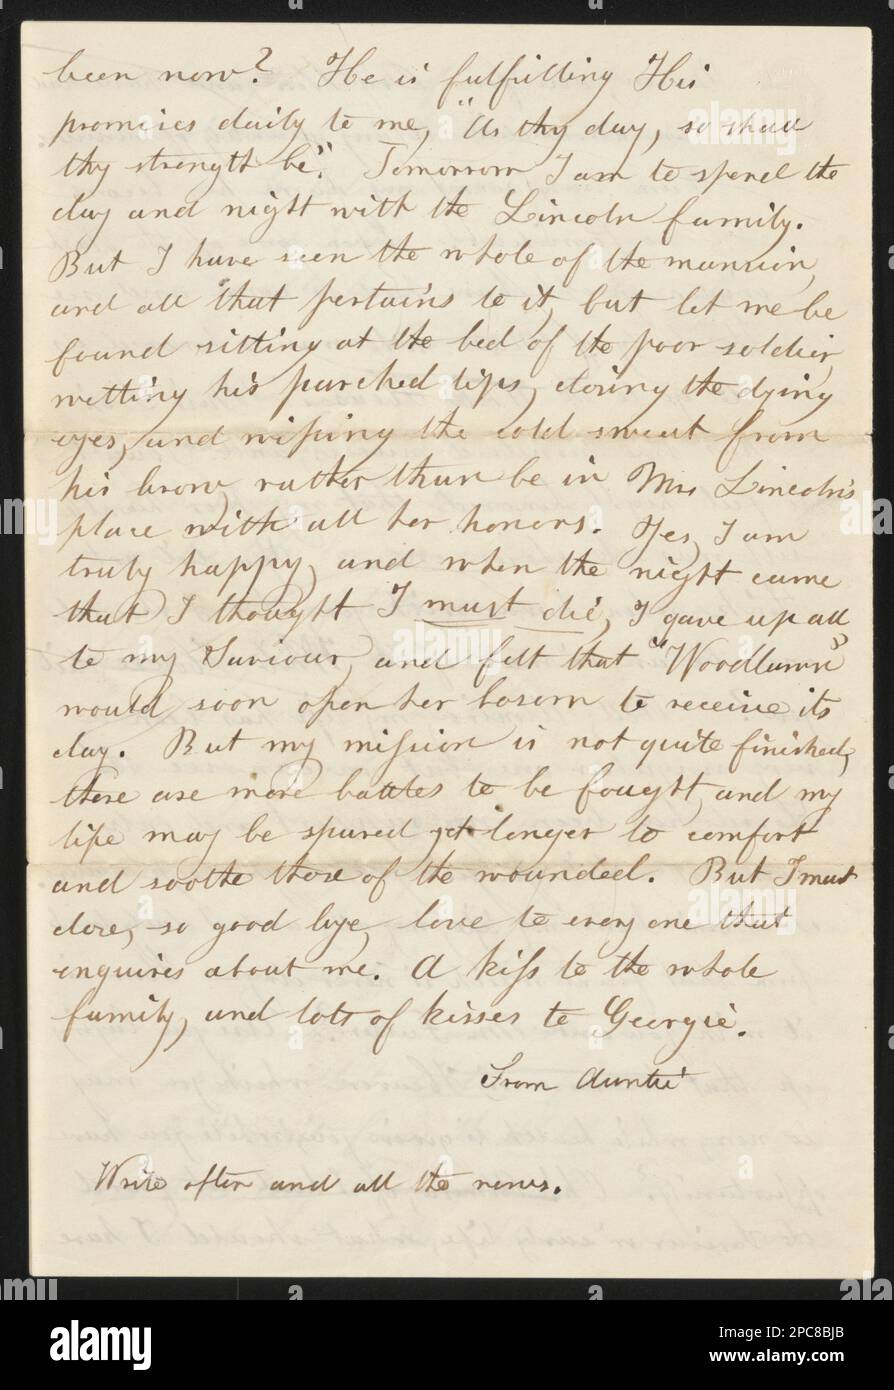 been now? He is fulfilling His
promises daily to me, "As thy day, so shall
thy strength be". Tomorrow I am to spend the
day and night with the Lincoln family.
But I have seen the whole of the mansion,
and all that pertains to it, but let me be
found sitting at the bed of the poor soldier,
wetting his parched lips, closing the dying
eyes, and wiping the cold sweat from
his brow, rather than be in Mrs Lincoln's
place with all her honors. Yes, I am
truly happy, and when the night came
that I thought I must die, I gave up all
to my Saviour, and felt that "Woodlawn"
would soon open her bosom to receive its
clay. But my mission is not quite finished,
there are more battles to be fought, and my
life may be spared yet longer to comfort
and soothe those of the wounded. But I must
close, so good bye, love to every one that
enquires about me. A kiss to the whole
family, and lots of kisses to Georgie.
From Auntie
Write often and all the news.
alamy
alamy
Image ID: 2PC8BJB
www.alamy.com